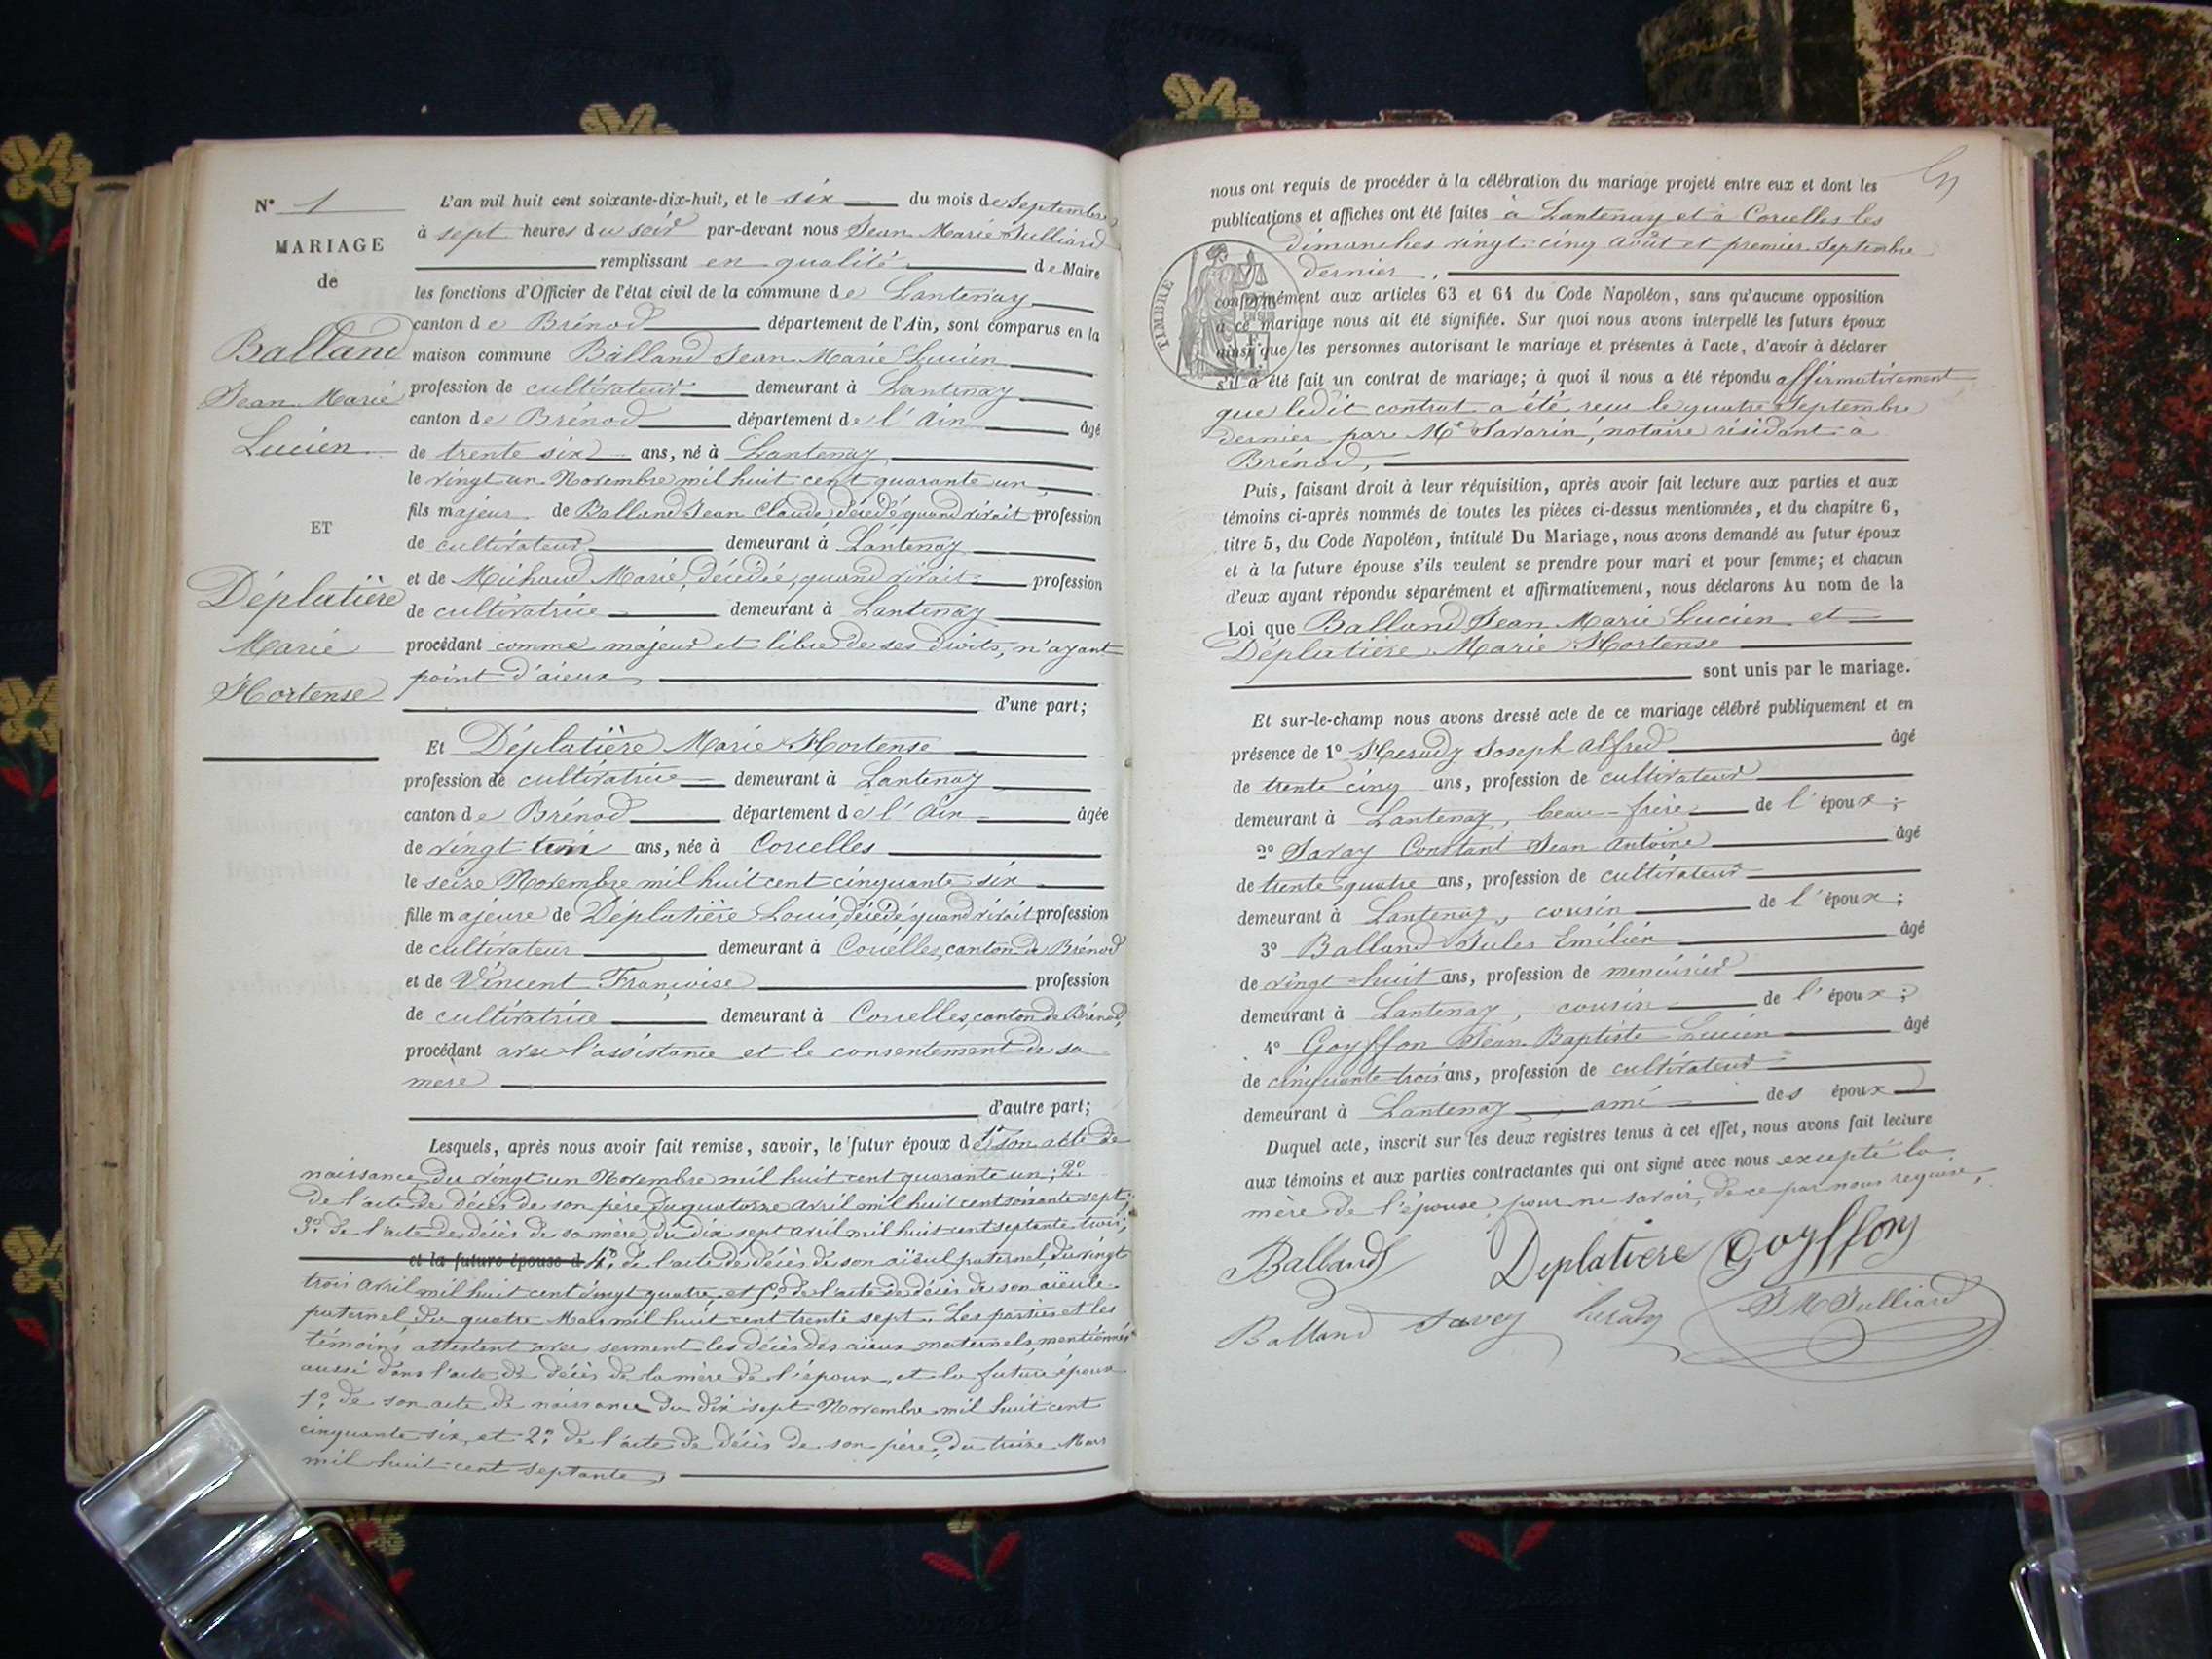 N° 1
MARIAGE
de
Balland
Jean Marie
Lucien
ET
Déplatière
Marie
Hortense
L'an mil huit cent soixante-dix-huit, et le six du mois de Septembre
à sept heures du soir par-devant nous Jean Marie Julliard
remplissant en qualité de Maire
les fonctions d'Officier de l'état civil de la commune de Lantenay
canton de Brénod département de l'Ain, sont comparus en la
maison commune Balland Jean Marie Lucien
profession de cultivateur demeurant à Lantenay
canton de Brénod département de l'Ain âgé
de trente six ans, né à Lantenay
le vingt un Novembre mil huit cent quarante un
fils majeur de Balland Jean Claude décédé quand vivait profession
de cultivateur demeurant à Lantenay
et de Michaud Marie, décédée, quand vivait profession
de cultivatrice demeurant à Lantenay
procédant comme majeur et libre de ses droits, n'ayant
point d'aïeux
d'une part;
Et Déplatière Marie Hortense
profession de cultivatrice demeurant à Lantenay
canton de Brénod département de l'Ain âgée
de vingt un ans, née à Corcelles
le seize Novembre mil huit cent cinquante six
fille majeure de Déplatière Louis, décédé, quand vivait profession
de cultivateur demeurant à Corcelles, canton de Brénod
et de Vincent Françoise profession
de cultivatrice demeurant à Corcelles, canton de Brénod,
procédant avec l'assistance et le consentement de sa
mère
d'autre part;
Lesquels, après nous avoir fait remise, savoir, le futur époux d 1° son acte de
naissance du vingt un Novembre mil huit cent quarante un; 2°
de l'acte de décès de son père, du quatorze avril mil huit cent soixante sept;
3° de l'acte de décès de sa mère, du dix sept avril mil huit cent septante trois;
et la future épouse d 4° de l'acte de décès de son aïeul paternel, du vingt
trois avril mil huit cent vingt quatre, et 5° de l'acte de décès de son aïeule
paternel du quatre Mars mil huit cent trente sept. Les parties et les
témoins attestent avec serment les décès des aïeux maternels, mentionnés
aussi dans l'acte de décès de la mère de l'époux, et la future épouse
1° de son acte de naissance du dix sept Novembre mil huit cent
cinquante six, et 2° de l'acte de décès de son père, du treize Mars
mil huit cent septante,
nous ont requis de procéder à la célébration du mariage projeté entre eux et dont les
publications et affiches ont été faites à Lantenay et à Corcelles les
dimanches vingt-cinq août et premier Septembre
dernier,
TIMBRE
conformément aux articles 63 et 64 du Code Napoléon, sans qu'aucune opposition
à ce mariage nous ait été signifiée. Sur quoi nous avons interpellé les futurs époux
ainsi que les personnes autorisant le mariage et présentes à l'acte, d'avoir à déclarer
s'il a été fait un contrat de mariage; à quoi il nous a été répondu affirmativement
que ledit contrat a été reçu le quatre Septembre
dernier par Me Savarin, notaire résidant à
Brénod,
Puis, faisant droit à leur réquisition, après avoir fait lecture aux parties et aux
témoins ci-après nommés de toutes les pièces ci-dessus mentionnées, et du chapitre 6,
titre 5, du Code Napoléon, intitulé Du Mariage, nous avons demandé au futur époux
et à la future épouse s'ils veulent se prendre pour mari et pour femme; et chacun
d'eux ayant répondu séparément et affirmativement, nous déclarons Au nom de la
Loi que Balland Jean Marie Lucien et
Déplatière Marie Hortense
sont unis par le mariage.
Et sur-le-champ nous avons dressé acte de ce mariage célébré publiquement et en
présence de 1° Herudy Joseph Alfred âgé
de trente cinq ans, profession de cultivateur
demeurant à Lantenay, beau-frère de l'époux;
2° Savay Constant Jean Antoine âgé
de trente quatre ans, profession de cultivateur
demeurant à Lantenay, cousin de l'époux;
3° Balland Jules Emilien âgé
de vingt-huit ans, profession de menuisier
demeurant à Lantenay, cousin de l'époux;
4° Goyffon Jean Baptiste Lucien âgé
de cinquante trois ans, profession de cultivateur
demeurant à Lantenay, ami des époux
Duquel acte, inscrit sur les deux registres tenus à cet effet, nous avons fait lecture
aux témoins et aux parties contractantes qui ont signé avec nous excepté la
mère de l'épouse, pour ne savoir, de ce par nous requise,
Balland Deplatiere Goyffon
Balland Savey herudy JM Julliard